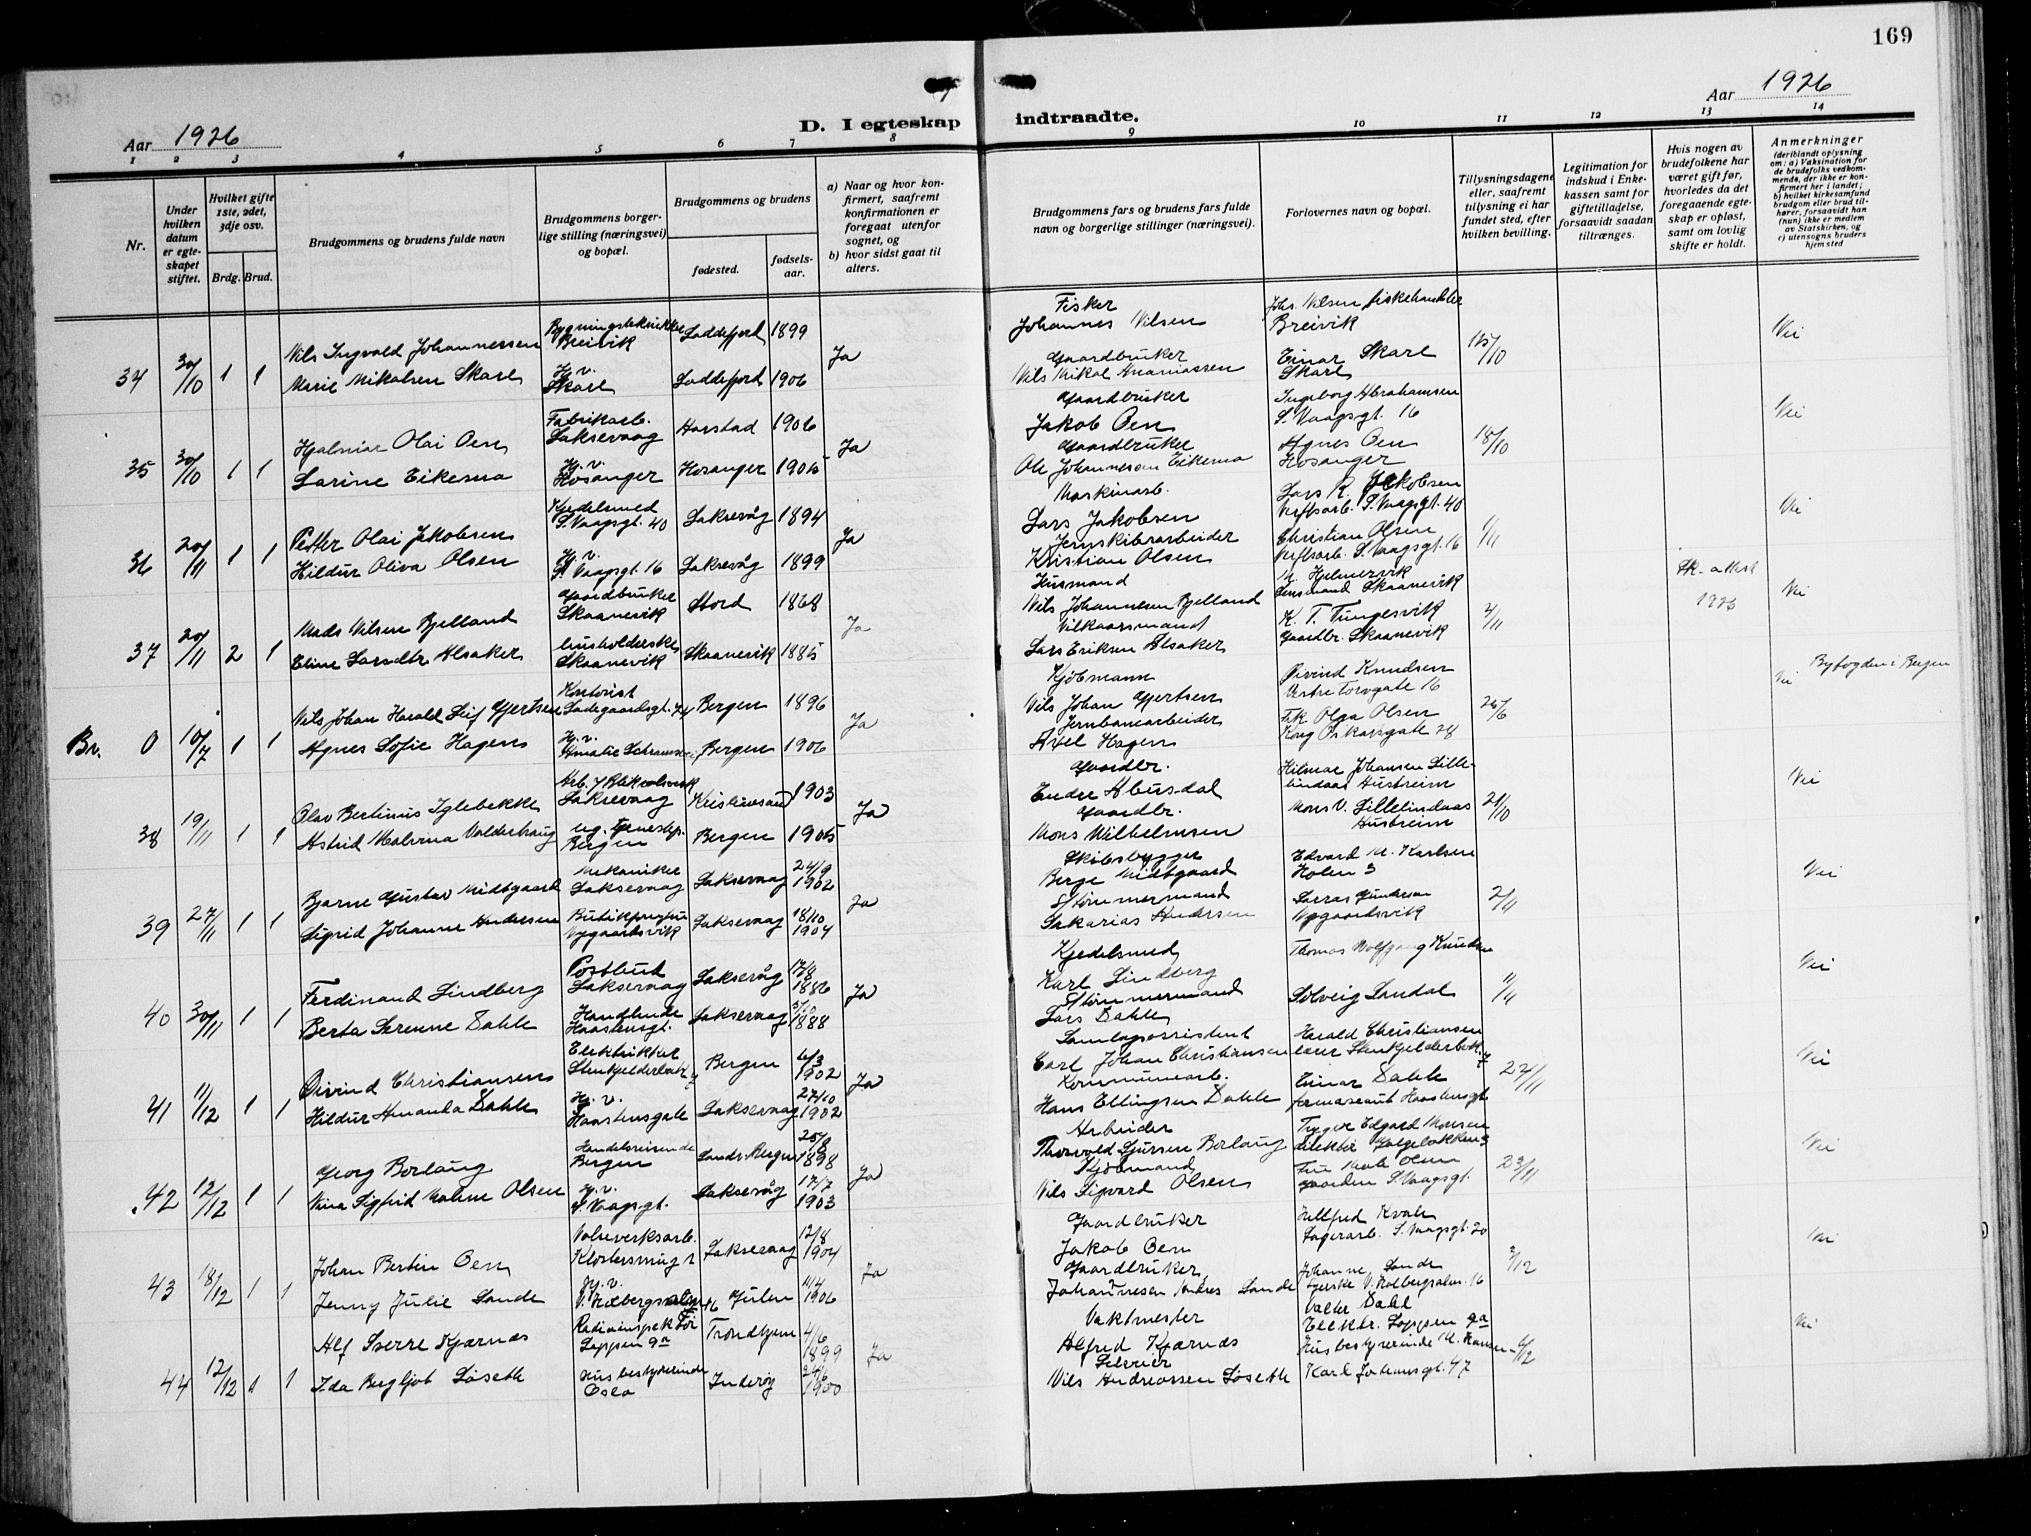 169
Aar 1926
D. I egteskap indtraadte.
Aar 1926
1 2 3 4 5 6 7 8 9 10 11 12 13 14
Nr.
Under hvilken datum er egteskapet stiftet.
Hvilket gifte 1ste, 2det, 3dje osv.
Brdg. Brud.
Brudgommens og brudens fulde navn
Brudgommens borgerlige stilling (næringsvei) og bopæl.
Brudgommens og brudens
fødested.
fødselsaar.
a) Naar og hvor konfirmert, saafremt konfirmationen er foregaat utenfor sognet, og
b) hvor sidst gaat til alters.
Brudgommens fars og brudens fars fulde navn og borgerlige stillinger (næringsvei).
Forlovernes navn og bopæl.
Tillysningsdagene eller, saafremt tillysning ei har fundet sted, efter hvilken bevilling.
Legitimation for indskud i Enkekassen samt for giftetilladelse, forsaavidt saadan tiltrænges.
Hvis nogen av brudefolkene har været gift før, hvorledes da det foregaaende egteskap er opløst, samt om lovlig skifte er holdt.
Anmerkninger
(deriblandt oplysning om: a) Vaksination for de brudefolks vedkommende, der ikke er konfirmert her i landet; b) hvilket kirkesamfund brudgom eller brud tilhører, forsaavidt han (hun) ikke er medlem av Statskirken, og c) utensogns bruders hjemsted
34 30/10 1 1
Nils Ingvald Johannessen Bygningstekniker Breivik Loddefjord 1899
Marie Mikalsen Skarl Hj. v. Skarl Loddefjord 1906 Ja
Fisker Johannes Nilsen Johs. Nilsen fiskehandler Breivik
Gaardbruker Nils Mikal Ananiassen Einar Skarl Skarl 15/10 Nei
35 30/10 1 1
Hjalmar Olai Oen Fabrikarb. Laksevaag Harstad 1906
Larine Eikemo Hj. v. Hosanger Hosanger 1905 Ja
Gaardbruker Jakob Oen Ingeborg Abrahamsen S. Vaagsgt. 16
Gaardbruker Ole Johannesen Eikemo Agnes Oen Hosanger 18/10 Nei
36 20/11 1 1
Petter Olai Jakobsen Kjedelsmed S. Vaagsgt. 40 Laksevåg 1894
Hildur Oliva Olsen Hj. v. St. Vaagsgt. 16 Laksevåg 1899 Ja
Maskinarb. Lars Jakobsen Lars R. Jakobsen Verftsarb. S. Vaagsgt. 40
Jernskibarbeider Kristian Olsen Christian Olsen Verftsarb. S. Vaagsgt. 16 1/11 Nei
37 20/11 2 1
Mads Nilsen Bjelland Gaardbruker Skaanevik Stord 1868
Eline Larsdtr Alsaker husholderske Skaanevik Skaanevik 1885 Ja
Husmand Nils Johannesen Bjelland M. Hjelmervik Lensmand Skaanevik
Vilkaarsmand Lars Eriksen Alsaker K. T. Tungesvik Gaardbr. Skaanevik 2/11 Sk. attest 1926 Nei
Br. 0 10/7 1 1
Nils Johan Harald Leif Gjertsen Kontorist Ladegaardsgt. Bergen 1896
Agnes Sofie Hagen Hj. v. Bergen 1906 Ja
Kjøbmann Nils Johan Gjertsen Øivind Knudsen Vestre Torvgate 16
Jernbanearbeider Axel Hagen Frk. Olga Olsen Kong Oskarsgate 28 25/6 Nei Byfogden i Bergen
38 19/11 1 1
Olav Bertinus Iglebekke Laksevaag Kristiansand 1903
Astrid Malvina Valderhaug Bergen Bergen 1905 Ja
Gaardbr. Endre Abusdal Hilmar Johansen Lillelindaas Austreim
Gaardbr. Mons Wilhelmsen Mons V. Lillelindaas Austreim 21/10 Nei
39 27/11 1 1
Bjarne Gustav Midtgaard Mekaniker Laksevaag Laksevaag 24/9 1902
Sigrid Johanne Andersen Nygaardsvik Laksevaag 18/10 1904 Ja
Skibsbygger Berge Midtgaard Edvard M. Karlsen Holen 3
Tømmermand Sakarias Andersen Nygaardsvik 2/11 Nei
40 30/11 1 1
Ferdinand Lindberg Postbud Laksevaag Laksevåg 17/8 1886
Berta Serenne Dahle Handlende Haastensgt. Laksevaag 1888 Ja
Kjedelsmed Karl Lindberg Thomas Wolfgang Knudsen
Tømmermand Lars Dahle Solveig Sandal 1/11 Nei
41 11/12 1 1
Øivind Christiansen Elektriker Stenkjelderbak. 7 Bergen 6/3 1902
Hildur Amanda Dahle Hj. v. Haastensgate Laksevaag 27/10 1902 Ja
Carl Johan Christiansen Harald Christiansen Stenkjelderbak. 7
Kommunearb. Hans Ellingsen Dahle Einar Dahle Haastensgt. 22/11 Nei
42 12/12 1 1
Georg Borlaug Handelsreisende Bergen 1898
Nina Sigfrid Malene Olsen Hj. v. S. Vaagsgt. Laksevåg 17/7 1903 Ja
Arbeider Thorvald Sjursen Borlaug Trygve Edgard Monsen
Kjøbmand Nils Sigvard Olsen Gaarden S. Vaagsgt. 23/11 Nei
43 18/12 1 1
Johan Bertin Oen Valseverksarb. Klostersmug 1 Laksevaag 12/8 1904
Jenny Julie Sande Hj. v. Gulen 11/4 1906 Ja
Gaardbruker Jakob Oen Hillfred Kvale Lagerarb. S. Vaagsgt. 20
Gaardbruker Johannesen Andres Sande Johanne Sande 2/12 Nei
44 12/12 1 1
Alf Sverre Kjærnæs Loppen 9a Trondhjem 4/6 1899
Ida Bergljot Løseth Husbestyrerinde Oslo Inderøy 24/6 1900 Ja
Vaktmester Alfred Kjærnæs Valter Dahl Elektr. Loppen 9a
Nils Andreassen Løseth Husbestyrerinde M. Hansen Karl Johansgt. 47 6/12 Nei